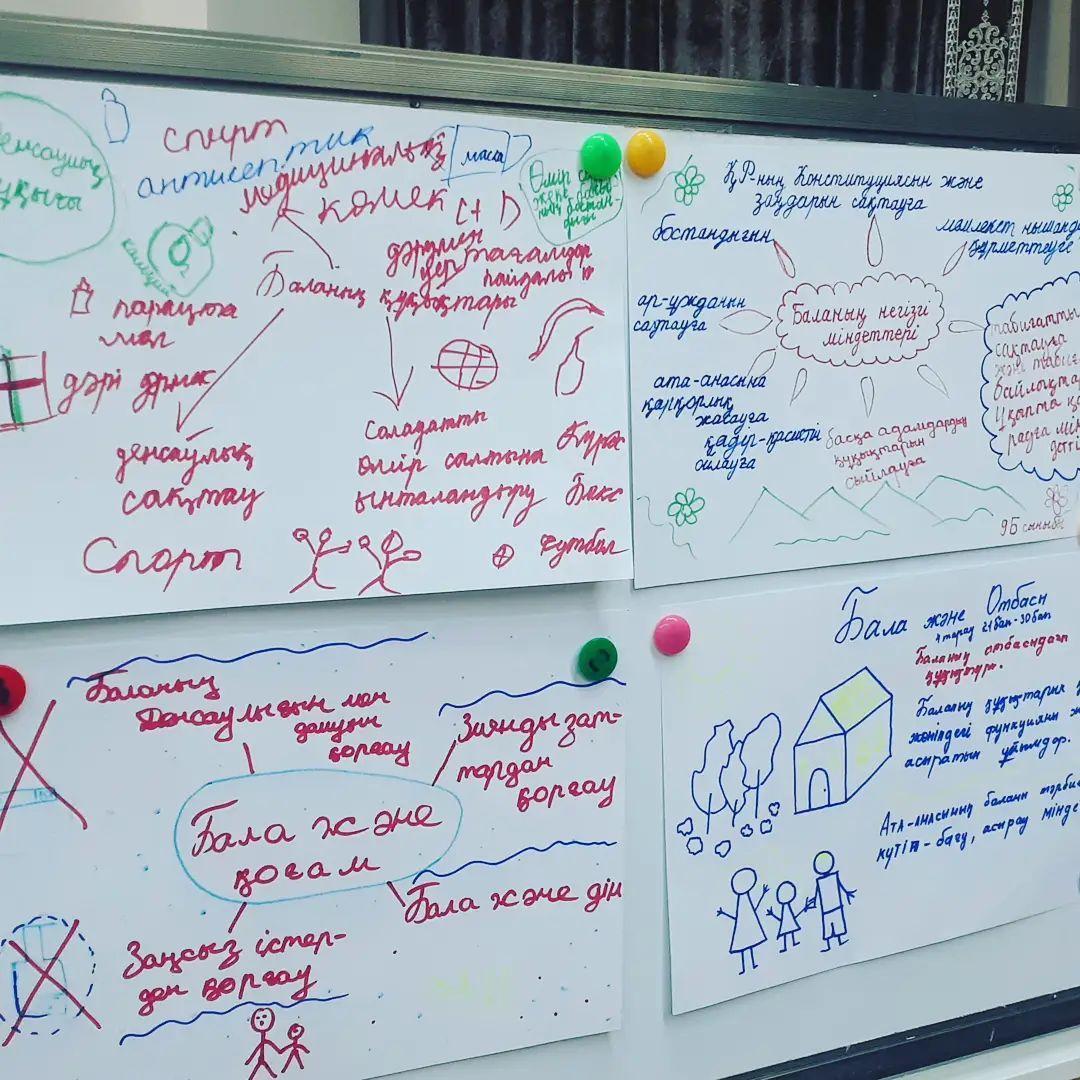 спорт
антисептик
медициналық
көмек
маска
C + D
дәрумен
тағамдар
пайдалы
кальций
Баланың құқықтары
парацета
мол
дәрі дәрмек
денсаулық
сақтау
салауатты
өмір салтына
ынталандыру
Күрес
Бокс
Футбол
Спорт
ҚР-ның Конституциясын және
заңдарын сақтауға
бостандығын
мемлекет нышанд
құрметтеуге
ар-ұжданын
сақтауға
Баланың негізгі
міндеттері
табиғатты
сақтауға
және табиғ
байлықта
ата-анасына
қамқорлық
жасауға
қадір-қасиетін
ойлауға
басқа адамдардың
құқықтарын
сыйлауға
9Б сыныбы
Баланың
Денсаулығын мен
дамуын
қорғау
Зиянды зат-
тардан
қорғау
Бала және
қоғам
Бала және дін
Заңсыз істер-
ден қорғау
Бала және Отбасы
4 тарау 21 бап-30 бап
Баланың отбасындағы
құқықтары.
Баланың құқықтарын қ
жөніндегі функцияны ж
асыратын ұйымдар.
Ата-анасының баланы тәрбие
күтіп-бағу, асырау мінде